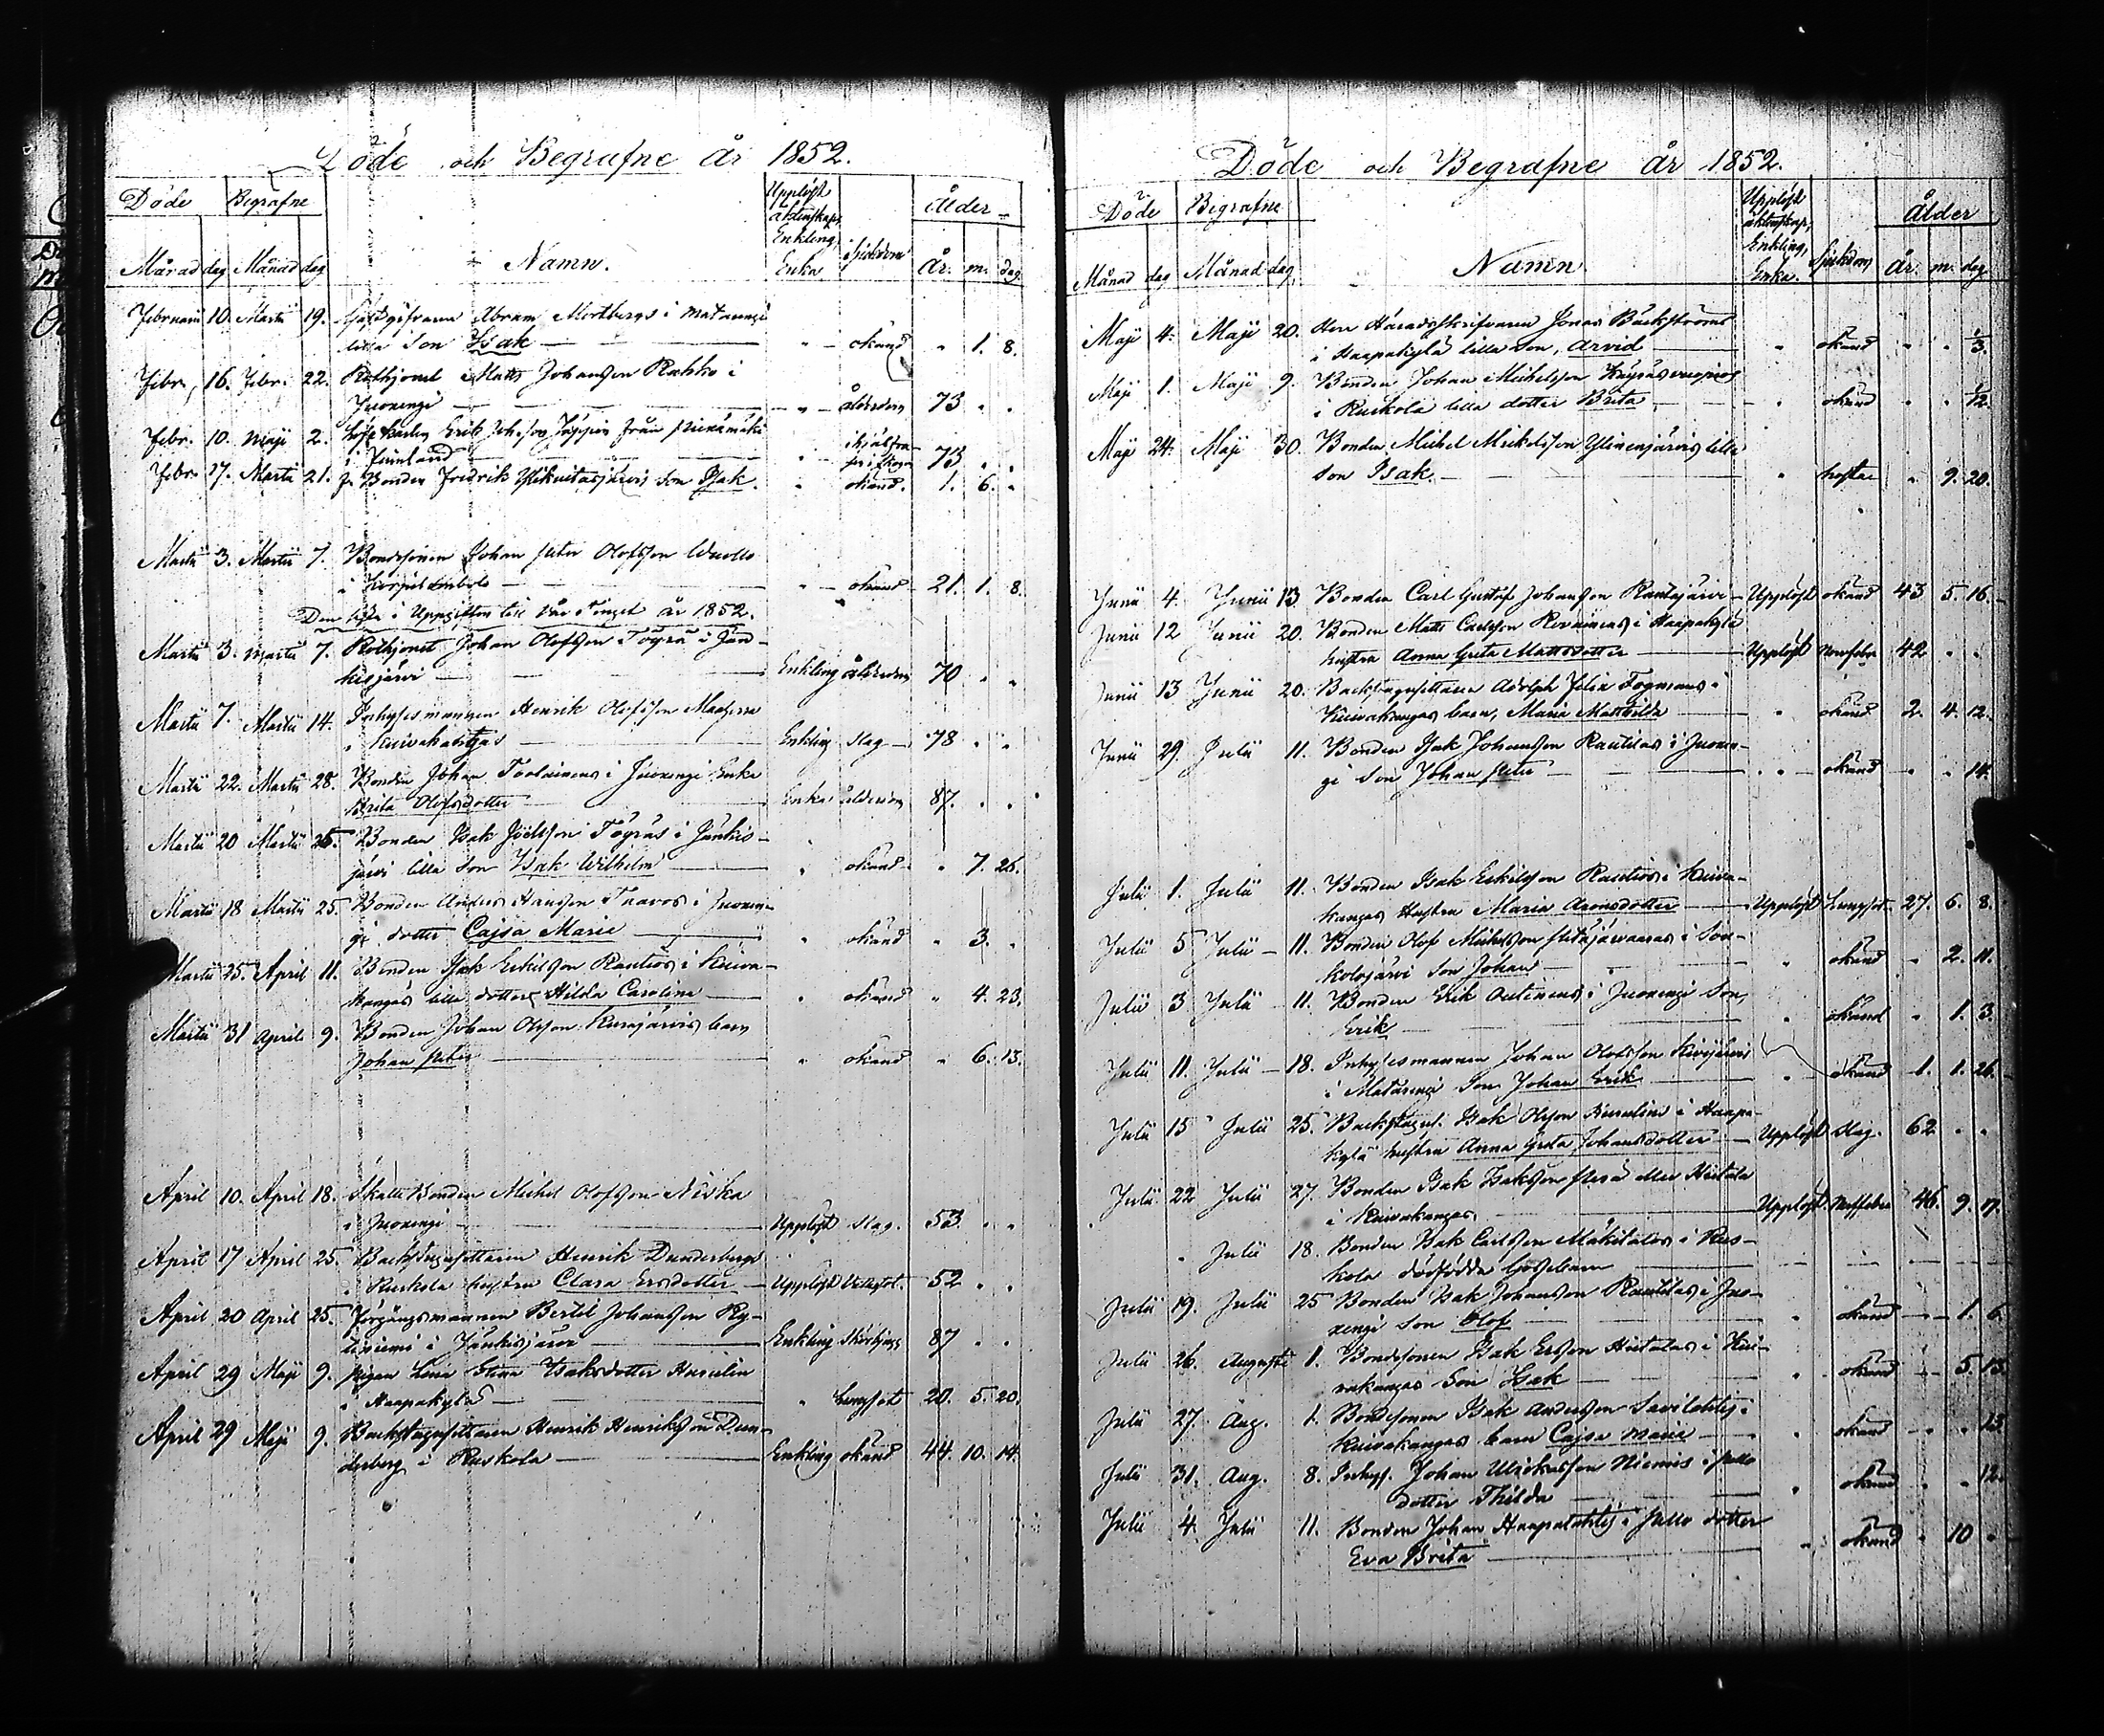 Döde och Begrafne år 1852.
Döde Begrafne Upplöst äktenskap, Enkling, Enka Sjukdom Ålder
Månad dag Månad dag Namn. År. m. dag.
Februarii 10. Martii 19. Abram Mörtbergs i Mataringi
lilla son Isak okänd " 1. 8.
Febr. 16. Febr. 22. Rothjonet Matts Johansson Rahko i
Juoxengi ålderdom 73 " "
Febr. 10. Maji 2. Erik Joh:sson från
i Finland 73 " "
Febr. 17. Martii 21. Bonden Fredrik son Isak. okänd. 1. 6. "
Martii 3. Martii 7. Bondesonen Johan Petter Olofsson Wuollo
i okänd 21. 1. 8.
Den i Uppgiften till år 1852.
Martii 3. Martii 7. Rothjonet Johan Olofsson Tögrä i Jän-
kisjärvi Enkling ålderdom 70 " "
Martii 7. Martii 14. Inhysesmannen Henrik Olofsson
i Kuivakangas Enkling slag 78 " "
Martii 22. Martii 28. Bonden Johan i Juoxengi Enka
Brita Olofsdotter Enka ålderdom 87. " "
Martii 20 Martii 25. Bonden Isak Joelsson Tögräs i Jänkis-
järvi lilla son Isak Wilhelm " okänd " 7. 26.
Martii 18 Martii 25. Bonden Anders Hansson Taavos i Juoxen-
gi dotter Cajsa Maria " okänd " 3. "
Martii 25. April 11. Bonden Isak Eriksson Rautios i Kuiva-
kangas lilla dotter Hilda Carolina " okänd " 4. 23.
Martii 31 April 9. Bonden Johan Olsson barn
Johan Petter " okänd " 6. 13.
April 10. April 18. Skatte Bonden Michel Olofsson Niska
i Juoxengi Upplöst slag. 53. " "
April 17 April 25. Backstugusittaren Henrik Dunderbergs
i Ruskola hustru Clara Ersdotter Upplöst 52 " "
April 20 April 25. Förgångsmannen Bertil Johansson Ky-
i Jänkisjärvi Enkling 87 " "
April 29 Maji 9. Pigan Lena Stina Isaksdotter
i Haapakylä " Lungsot 20. 5. 20.
April 29 Maji 9. Backstugusittaren Henrik Henriksson Dun-
derberg i Ruskola Enkling okänd 44. 10. 14.
Döde och Begrafne år 1852.
Döde Begrafne Upplöst äktenskap, Enkling, Enka. Sjukdom Ålder
Månad dag Månad dag. Namn. År. m. dag
Maji 4. Maji 20. Herr Häradsskrifvaren Jonas Bäckströms
i Haapakylä lilla son, Arvid " okänd " " 1/3.
Maji 1. Maji 9. Bonden Johan Michelsson
i Ruskola lilla dotter Brita " okänd " " 1/12.
Maji 24. Maji 30. Bonden Michel Michelsson Ylinenjärvis lilla
son Isak. " hosta " 9. 20.
Junii 4. Junii 13. Bonden Carl Gustaf Johansson Rautajärvi Upplöst okänd 43 5. 16.
Junii 12 Junii 20. Bonden Matts Carlsson i Haapakylä
hustru Anna Greta Mattsdotter Upplöst 42 " "
Junii 13 Junii 20. Backstugusittaren Adolph Felix Fogmans i
Kuivakangas barn, Maria Mathilda " okänd 2. 4. 12.
Junii 29. Julii 11. Bonden Isak Johansson Rautilas i Juoxen-
gi son Johan Petter " okänd " " 14.
Julii 1. Julii 11. Bonden Isak Eriksson Rautios i Kuiva-
kangas Hustru Maria Aronsdotter Upplöst Lungsot. 27. 6. 8.
Julii 5 Julii 11. Bonden Olof Michelsson i
son Johan " okänd " 2. 11.
Julii 3 Julii 11. Bonden Erik i Juoxengi Son,
Erik " okänd " 1. 3.
Julii 11. Julii 18. Inhysesmannen Johan Olofsson
i Mataringi Son Johan Erik " okänd 1. 1. 26.
Julii 15 Julii 25. Backstugus. Isak Olsson i Haapa-
kylä hustru Anna Greta Johansdotter Upplöst slag. 62 " "
Julii 22 Julii 27. Bonden Isak Isaksson eller Hietala
i Kuivakangas. Upplöst 46. 9. 17.
" Julii 18. Bonden Isak Carlsson Mäkitalos i Rus-
kola dödfödda Gossebarn
Julii 19. Julii 25 Bonden Isak Johansson Rautilas i Juo-
xengi son Olof " okänd 1. 6.
Julii 26. Augusti 1. Bondesonen Isak Ersson Hietalas i Kui-
vakangas Son Isak " okänd 5. 13.
Julii 27. Aug. 1. Bondesonen Isak Andersson i
Kuivakangas barn Cajsa Maria " okänd " " 13
Julii 31. Aug. 8. Inhys. Johan Niemis i Pello
dotter Thilda " okänd " " 12.
Julii 4. Julii 11. Bonden Johan i Pello dotter
Eva Brita " okänd " 10 "